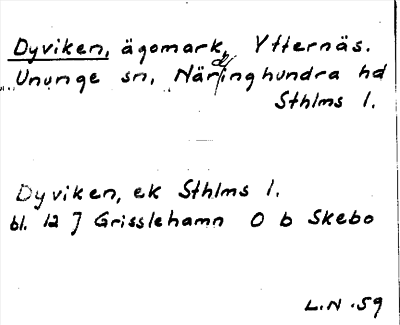 Dyviken, ägomark, Ytternäs.
Ununge sn, Närdinghundra hd
Sthlms l.
Dyviken, ek Sthlms l.
bl. 12 J Grisslehamn O b Skebo
L.N. 59